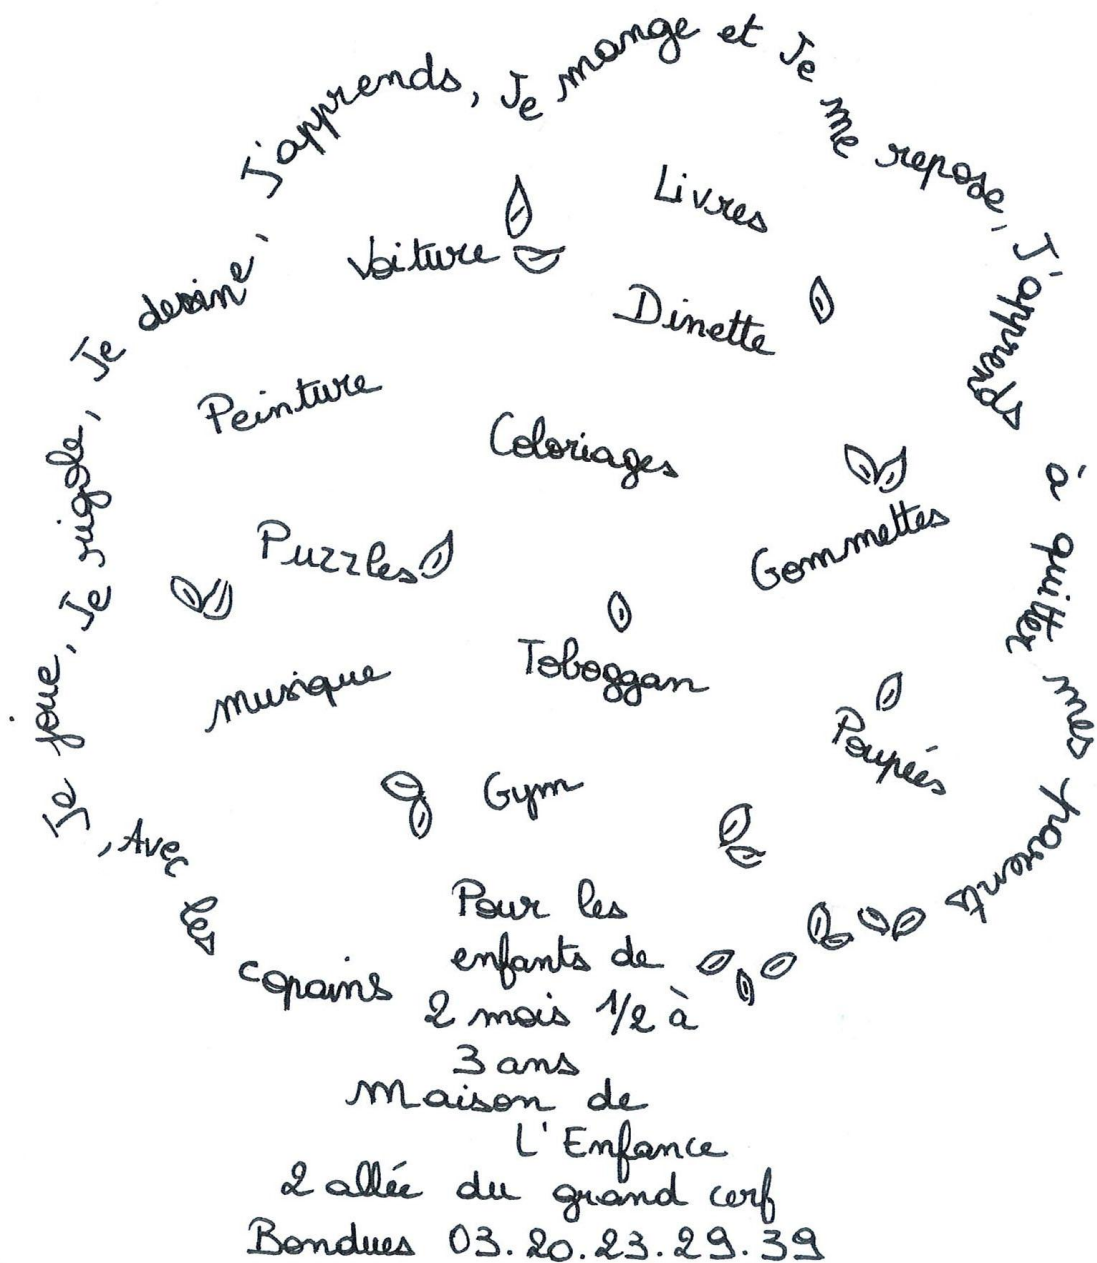 Avec les copains, Je joue, Je rigole, Je dessine, J'apprends, Je mange et Je me repose, J'apprends à quitter mes parents
Livres
Voiture
Dinette
Peinture
Coloriages
Gommettes
Puzzles
Toboggan
musique
Poupées
Gym
Pour les
enfants de
2 mois 1/2 à
3 ans
Maison de
L'Enfance
2 allée du grand cerf
Bondues 03.20.23.29.39